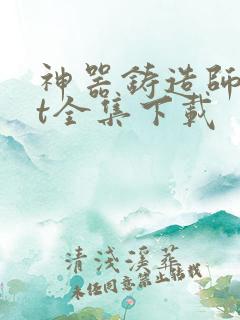 神器鋳造師
t全集下載
清淺溪葬
未经同意禁止转载